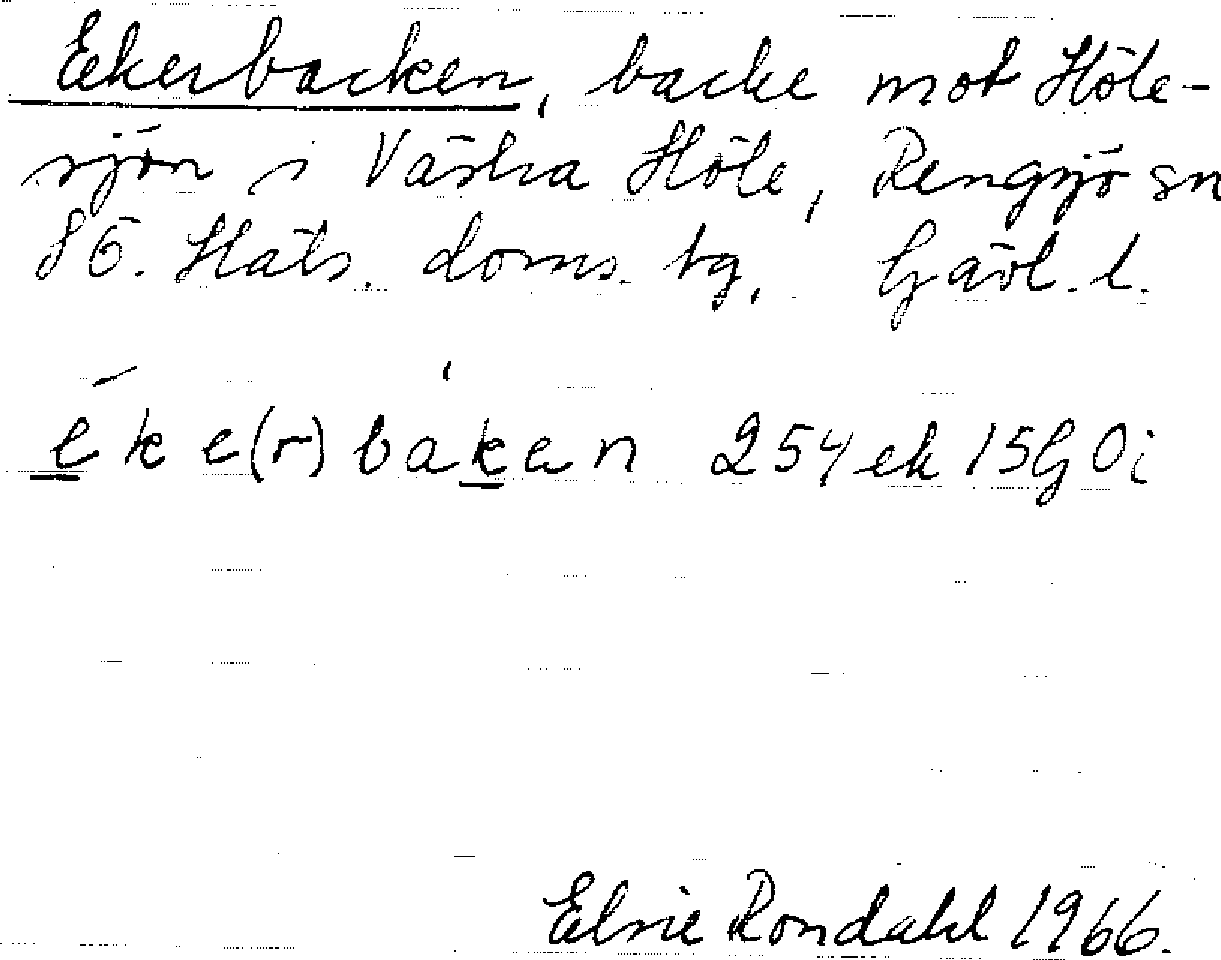 Ekerbacken, backe mot Höle-
sjön i Västra Höle, Rengsjö sn
SÖ. Häls. doms. tg, Gävl. l.
éke(r)bàkan 254 ek 15G Oi
Elsie Rondahl 1966.